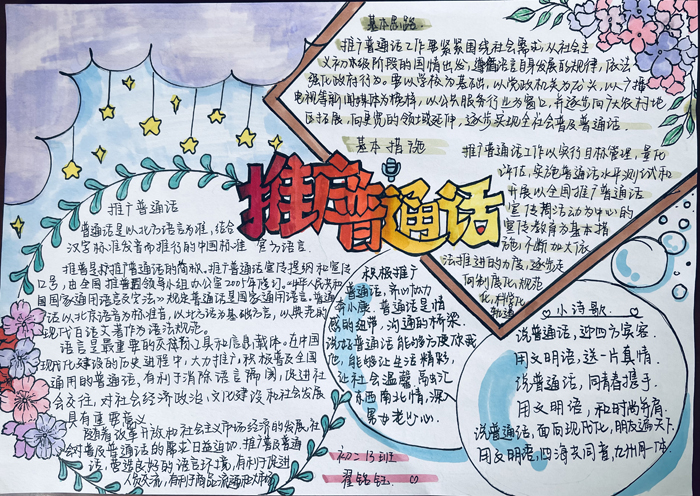 推广普通话
基本思路
推广普通话工作要紧紧围绕社会需求,从社会主
义初级阶段的国情出发,遵循语言自身发展的规律,依法
强化政府行为。要以学校为基础,以党政机关为龙头,以广播
电视等新闻媒体为榜样,以公共服务行业为窗口,并逐步向广大农村地
区拓展,向更宽的领域延伸,逐步实现全社会普及普通话.
基本措施
推广普通话工作以实行目标管理,量化
评估,实施普通话水平测试和
开展以全国推广普通话
宣传周活动为中心的
宣传教育为基本措
施,不断加大依
法推进的力度,逐步走
向制度化,规范
化,科学化
轨道
推广普通话
普通话是以北方语言为准,结合
汉字标准发音而推行的中国标准官方语言.
推普是对推广普通话的简称。推广普通话宣传提纲和宣传
口号,由全国推普周领导小组办公室2001年修订。《中华人民共和
国国家通用语言文字法》规定普通话是国家通用语言.普通
话以北京语音为标准音,以北方话为基础方言,以典范的
现代白话文著作为语法规范。
语言是最重要的交际工具和信息载体。在中国
现代化建设的历史进程中,大力推广,积极普及全国
通用的普通话,有利于消除语言隔阂,促进社
会交往,对社会经济政治,文化建设和社会发展
具有重要意义
随着改革开放和社会主义市场经济的发展,社
会对普及普通话的需求日益迫切.推广普及普通
话,营造良好的语言环境,有利于促进
人员交流,有利于商品流通
积极推广
普通话,齐心协力
奔小康.普通话是情
感的纽带,沟通的桥梁.
说好普通话能够方便你我
他,能够让生活精彩,
让社会温馨,
东西南北情,深入
男女老少心.
小诗歌
说普通话,迎四方宾客.
用文明语,送一片真情.
说普通话,同青春携手.
用文明语,和时尚并肩.
说普通话,面向现代化,朋友遍天下.
用文明语,四海共同音,九州同一体.
初二13班
翟铭钰